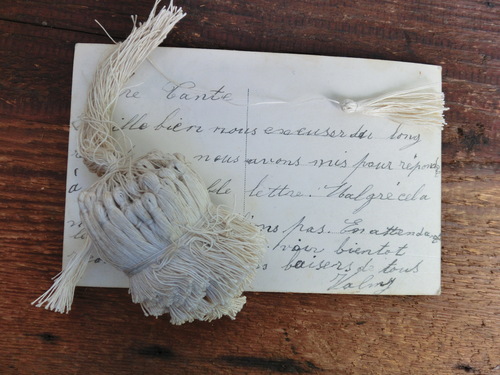 re Tante
ille bien nous excuser du long
nous avons mis pour répondre
lle lettre. Malgré cela
ns pas. En attendant
voir bientot
baisers de tous
Valmy